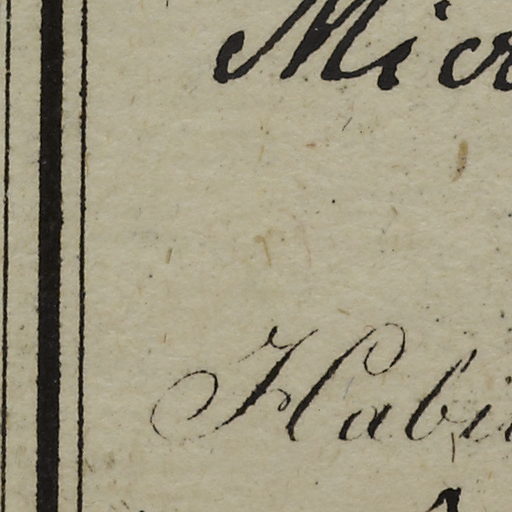 Micr
Habi